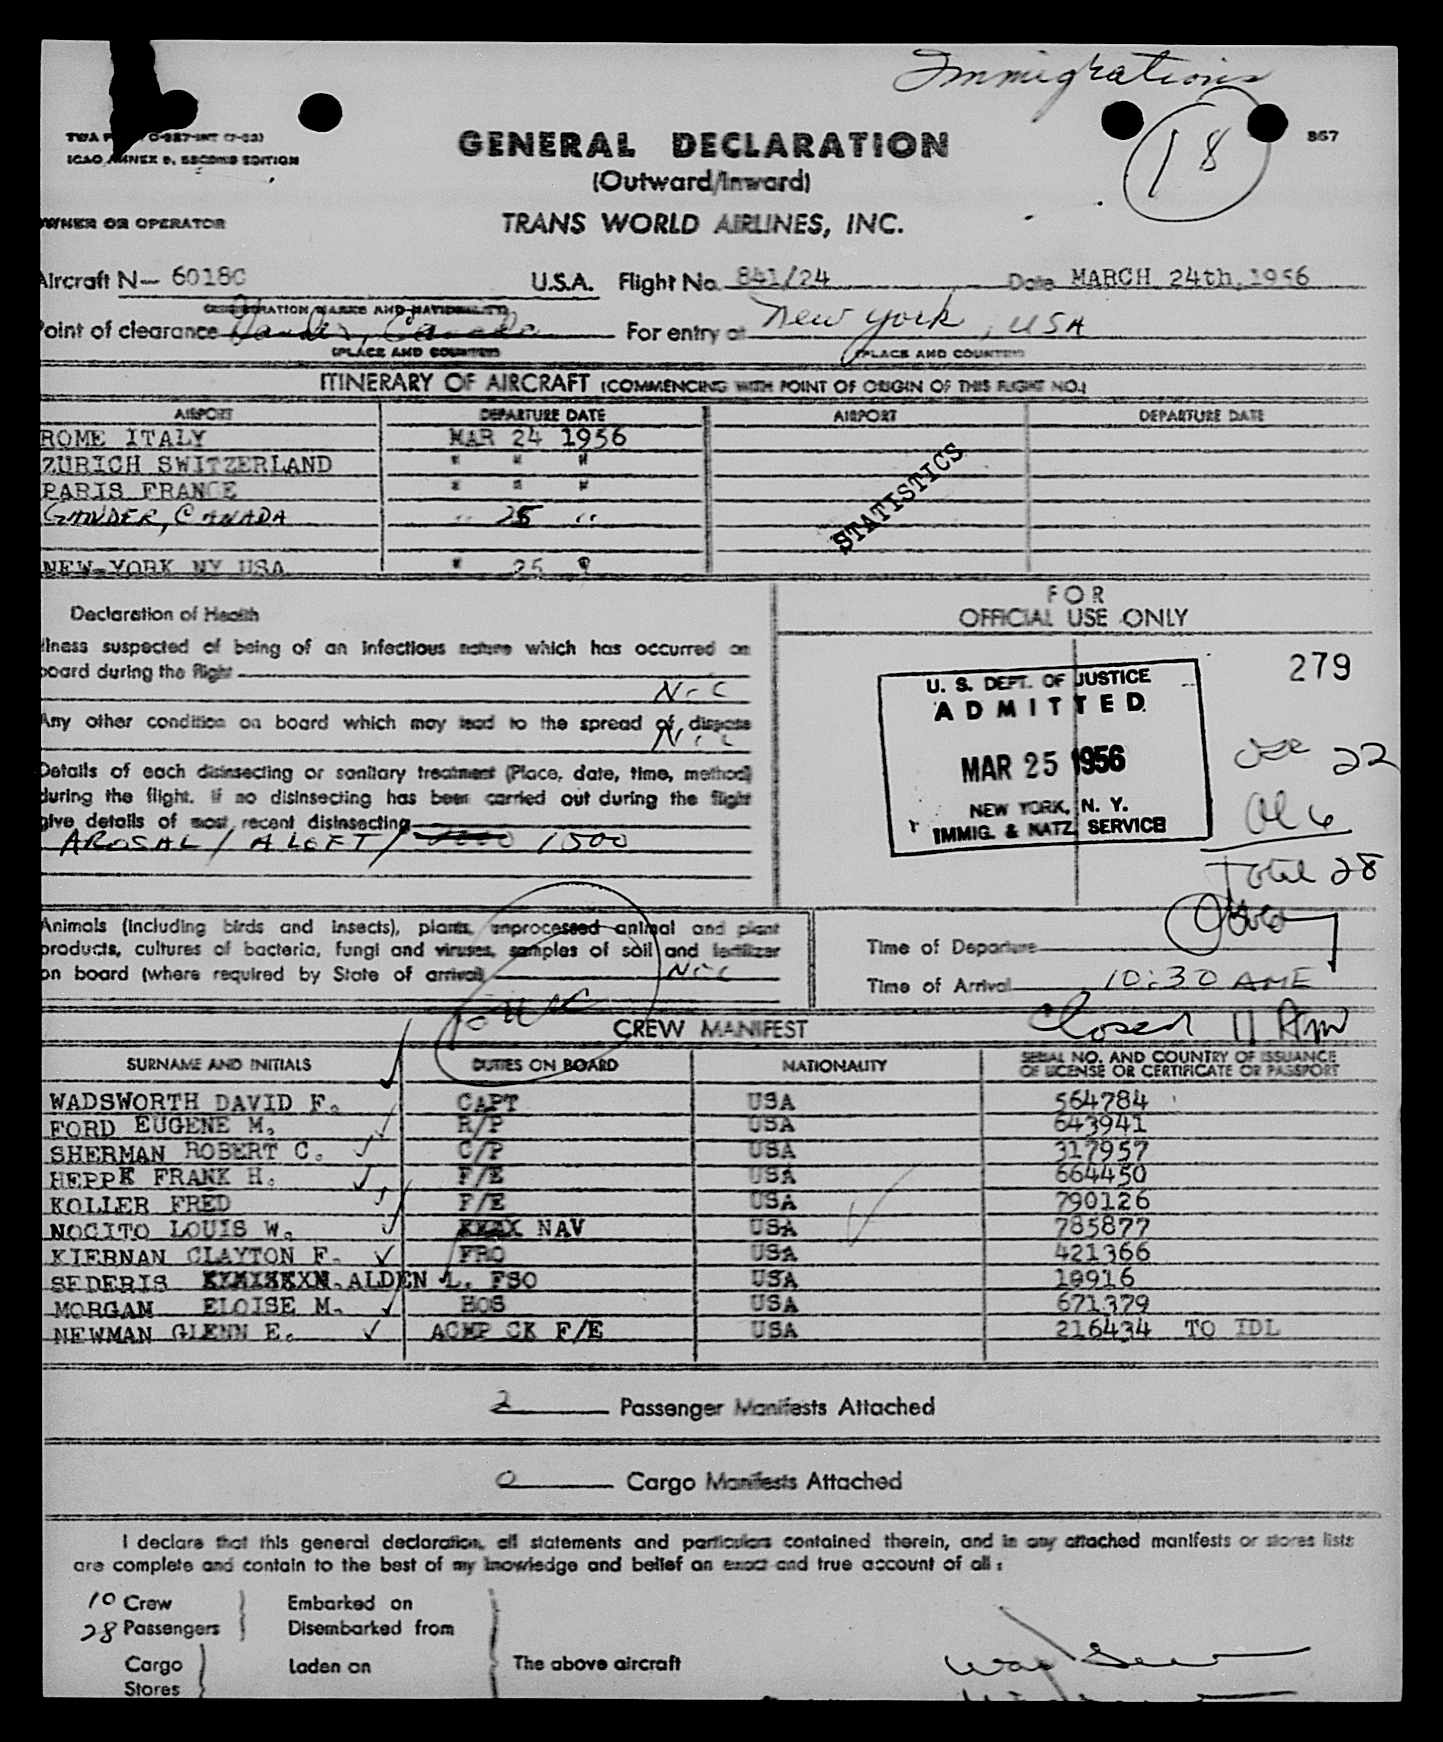 Immigrations
18
867
ICAO ANNEX 9, SECOND EDITION
GENERAL DECLARATION
(Outward/Inward)
OWNER OR OPERATOR
TRANS WORLD AIRLINES, INC.
Aircraft N— 6018C U.S.A. Flight No. 841/24 Date MARCH 24th, 1956
(REGISTRATION MARKS AND NATIONALITY)
Point of clearance Gander, Canada For entry at New York, USA
(PLACE AND COUNTRY) (PLACE AND COUNTRY)
ITINERARY OF AIRCRAFT (COMMENCING WITH POINT OF ORIGIN OF THIS FLIGHT NO.)
AIRPORT DEPARTURE DATE AIRPORT DEPARTURE DATE
ROME ITALY MAR 24 1956
ZURICH SWITZERLAND " " "
PARIS FRANCE " " "
GANDER, CANADA " 25 "
NEW-YORK NY USA " 25 "
STATISTICS
Declaration of Health
illness suspected of being of an infectious nature which has occurred on
board during the flight
Any other condition on board which may lead to the spread of disease
Details of each disinsecting or sanitary treatment (Place, date, time, method)
during the flight. If no disinsecting has been carried out during the flight
give details of most recent disinsecting
AROSAL / ALOFT / 1500
FOR
OFFICIAL USE ONLY
279
U. S. DEPT. OF JUSTICE
ADMITTED
MAR 25 1956
NEW YORK, N. Y.
IMMIG. & NATZ. SERVICE
22
6
Total 28
Animals (including birds and insects), plants, unprocessed animal and plant
products, cultures of bacteria, fungi and viruses, samples of soil and fertilizer
on board (where required by State of arrival)
Time of Departure
Time of Arrival 10:30 AME
Closed 11 Am
CREW MANIFEST
SURNAME AND INITIALS DUTIES ON BOARD NATIONALITY SERIAL NO. AND COUNTRY OF ISSUANCE
OF LICENSE OR CERTIFICATE OR PASSPORT
WADSWORTH DAVID F. CAPT USA 564784
FORD EUGENE M. R/P USA 643941
SHERMAN ROBERT C. C/P USA 317957
HEPPE FRANK H. F/E USA 664450
KOLLER FRED F/E USA 790126
NOCITO LOUIS W. NAV USA 785877
KIERNAN CLAYTON F. FRO USA 421366
SEDERIS ALDEN L. FSO USA 10916
MORGAN ELOISE M. HOS USA 671379
NEWMAN GLENN E. ACMP CK F/E USA 216434 TO IDL
2 Passenger Manifests Attached
0 Cargo Manifests Attached
I declare that this general declaration, all statements and particulars contained therein, and in any attached manifests or stores lists
are complete and contain to the best of my knowledge and belief an exact and true account of all:
10 Crew Embarked on
28 Passengers Disembarked from
Cargo Laden on The above aircraft
Stores